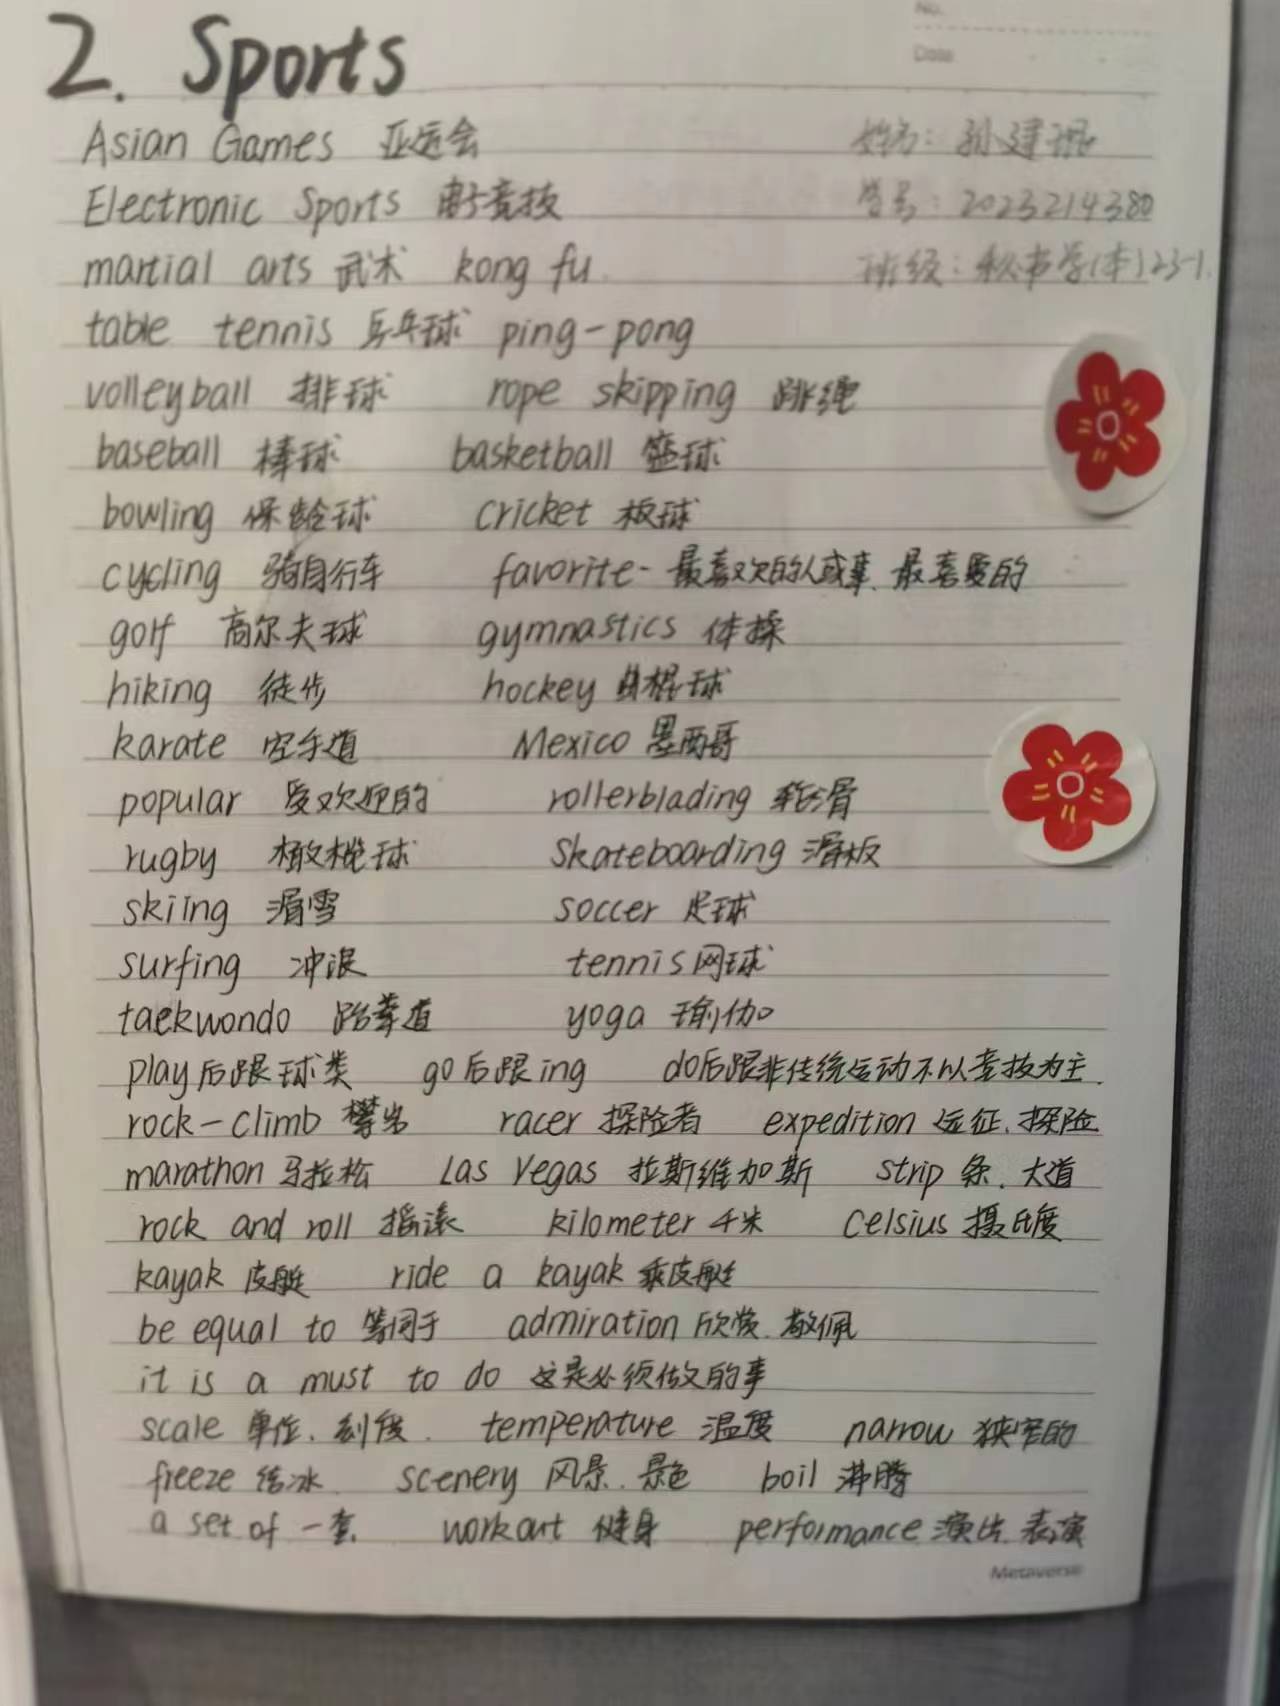 No.
Date
2. Sports
Asian Games 亚运会 姓名: 孙建
Electronic Sports 电子竞技 学号: 2023214380
martial arts 武术 kong fu. 班级: 秘书学(本)23-1.
table tennis 乒乓球 ping-pong
volleyball 排球 rope skipping 跳绳
baseball 棒球 basketball 篮球
bowling 保龄球 cricket 板球
cycling 骑自行车 favorite- 最喜欢的人或事、最喜爱的
golf 高尔夫球 gymnastics 体操
hiking 徒步 hockey 曲棍球
karate 空手道 Mexico 墨西哥
popular 受欢迎的 rollerblading 轮滑
rugby 橄榄球 skateboarding 滑板
skiing 滑雪 soccer 足球
surfing 冲浪 tennis 网球
taekwondo 跆拳道 yoga 瑜伽
play后跟球类 go后跟ing do后跟非传统运动不以竞技为主.
rock-climb 攀岩 racer 探险者 expedition 远征、探险
marathon 马拉松 Las Vegas 拉斯维加斯 strip 条、大道
rock and roll 摇滚 kilometer 千米 Celsius 摄氏度
kayak 皮艇 ride a kayak 乘皮艇
be equal to 等同于 admiration 欣赏、敬佩
it is a must to do 这是必须做的事
scale 单位、刻度. temperature 温度 narrow 狭窄的
freeze 结冰. scenery 风景、景色 boil 沸腾
a set of 一套 workout 健身 performance 演出、表演
Metaverse